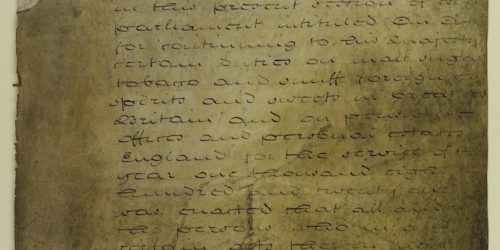 in this present session of
parliament intituled An Act
for continuing to his Majesty
certain duties on malt sugar
tobacco and snuff foreign
spirits and sweets in Great
Britain and on pensions
offices and personal estates
England for the service of the
year one thousand eight
hundred and twenty one
was enacted that all and
the persons who in a
certain acts